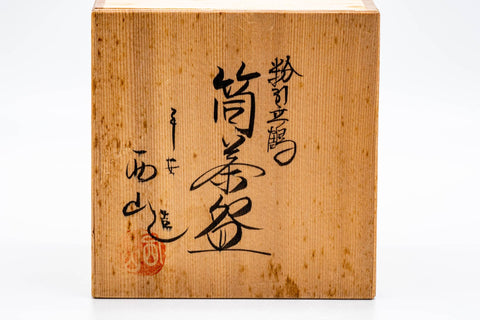 粉引立鶴
筒茶盌
平安
西山造